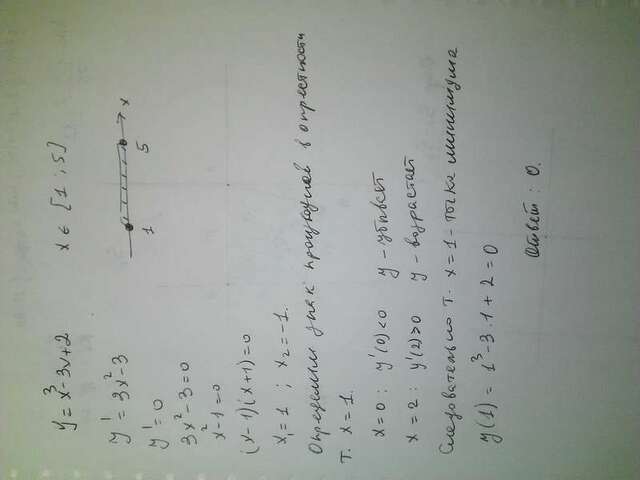 y = x³ - 3x + 2 x ∈ [1 ; 5]
y' = 3x² - 3
1 5 x
y' = 0
3x² - 3 = 0
x² - 1 = 0
(x - 1)(x + 1) = 0
x₁ = 1 ; x₂ = -1.
Определим знак производной в окрестности
т. x = 1.
x = 0 : y'(0) < 0 y - убывает
x = 2 : y'(2) > 0 y - возрастает
Следовательно т. x = 1 - точка минимума
y(1) = 1³ - 3 · 1 + 2 = 0
Ответ : 0.